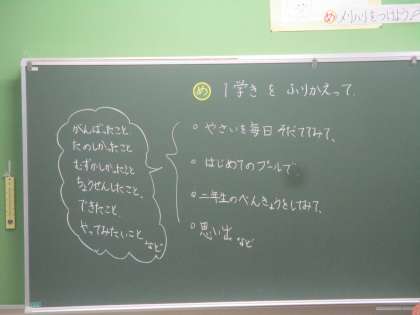 め メリハリをつけよう
め 1学きを ふりかえって、
がんばったこと、
たのしかったこと
むずかしかったこと
ちょうせんしたこと、
できたこと、
やってみたいこと
など
○ やさいを毎日 そだててみて、
○ はじめてのプールで
○ 二年生のべんきょうをしてみて、
○ 思い出 など